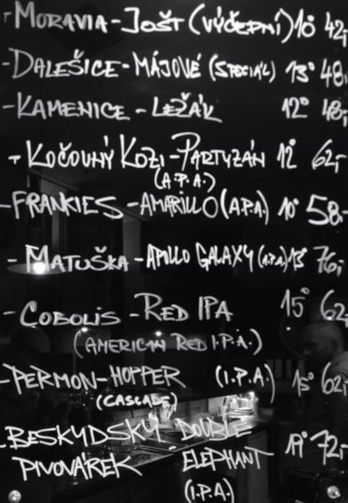 - MORAVIA - JOŠT (VÝČEPNÍ) 10° 42,-
- DALEŠICE - MÁJOVÉ (SPECIÁL) 13° 48,-
- KAMENICE - LEŽÁK 12° 48,-
- KOČOVNÝ KOZI - PARTYZÁN 12° 62,-
(A.P.A.)
- FRANKIES - AMARILLO (A.P.A.) 10° 58,-
- MATUŠKA - APOLLO GALAXY (A.P.A.) 13° 76,-
- COBOLIS - RED IPA 15° 62,-
(AMERICAN RED I.P.A.)
- PERMON - HOPPER (I.P.A.) 15° 62,-
(CASCADE)
- BESKYDSKÝ DOUBLE 72,-
PIVOVÁREK ELEPHANT
(I.P.A.)